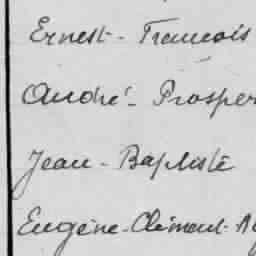 Ernest-Francois
André-Prosper
Jean-Baptiste
Eugène-Clément-